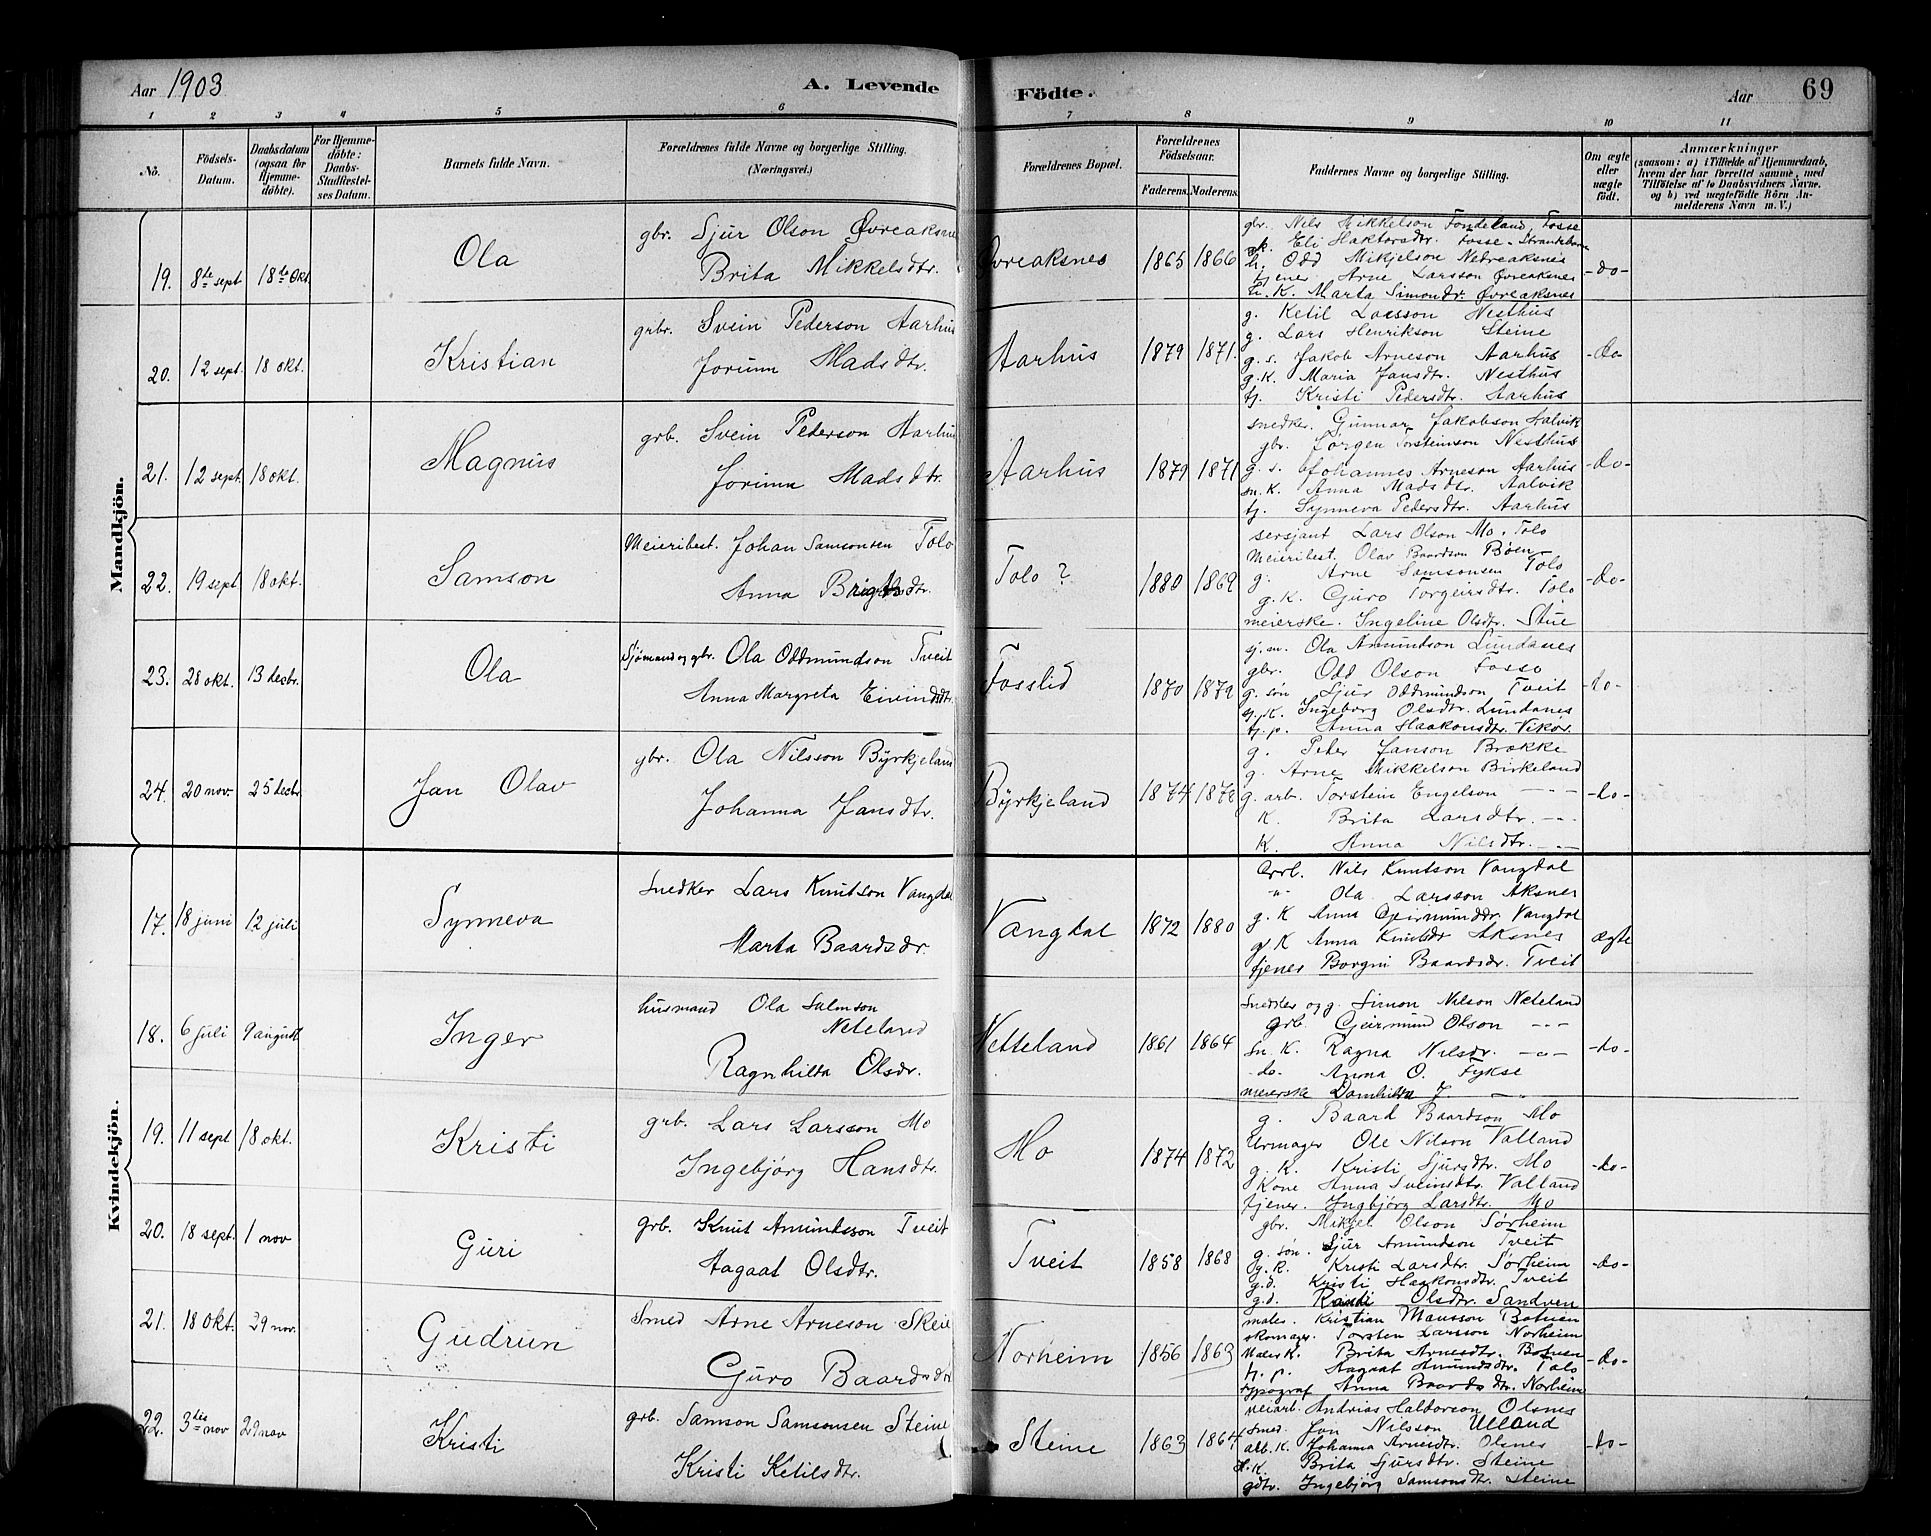 Aar 1903
A. Levende Födte.
Aar
69
1 2 3 4 5 6 7 8 9 10 11
No.
Födsels-Datum.
Daabsdatum (ogsaa for Hjemmedöbte).
For Hjemmedöbte: Daabs-Stadfæstelses Datum.
Barnets fulde Navn.
Forældrenes fulde Navne og borgerlige Stilling. (Næringsvei.)
Forældrenes Bopæl.
Forældrenes Födselsaar.
Faderens. Moderens.
Faddernes Navne og borgerlige Stilling.
Om ægte eller uægte født.
Anmærkninger (saasom: a) i Tilfælde af Hjemmedaab, hvem der har forrettet samme, med Tilföielse af to Daabsvidners Navne. og b) ved uægtefödte Börn Anmelderens Navn m. V.)
Mandkjön.
19. 8de sept 18de Okt. Ola
gbr. Sjur Olson Øvreaksnes
Brita Mikkelsdtr.
Øvreaksnes 1865 1866
gbr. Nils Mikkelson Tondeland, Fosse
Eli Haktorsdtr. Fosse - Strandebarm
Odd Mikjelson Nedreaksnes
tjener Arne Larsson Øvreaksnes
K. Marta Simondr. Øvreaksnes
-do-
20. 12 sept. 18 okt. Kristian
grbr. Svein Pederson Aarhus
Jorunn Madsdtr.
Aarhus 1879 1871.
g. Ketil Larsson Nesthus
g. Lars Henrikson Steine
g. s. Jakob Arneson Aarhus
g. K. Maria Jansdtr. Nesthus
tj. Kristi Pedersdtr. Aarhus
-do-
21. 12 sept. 18 okt. Magnus
grb. Svein Pederson Aarhus
Jorunn Madsdtr.
Aarhus 1879 1871
snedker. Gunnar Jakobson Aalvik
gbr. Jørgen Torsteinson Nesthus
g. s. Johannes Arneson Aarhus
sn. K. Anna Madsdtr. Aalvik
tj. Synneva Pedersdtr. Aarhus
-do-
22. 19 sept 18 okt. Samson
Meieribest. Johan Samsonsen Tolo
Anna Brigtsdtr.
Tolo? 1880 1869
sersjant Lars Olson Mo. Tolo
Meieribest. Olav Baardson Bøen
g. Arne Samsonsen Tolo
g. K. Guro Torgeirsdtr. Tolo
meierske. Ingeline Olsdtr. Stue
-do-
23. 28 okt. 13 decbr. Ola
Sjømand og gbr. Ola Oddmundson Tveit
Anna Margreta Eivindsdtr.
Fosslid 1870 1879
sj. m. Ola Amundson Lundanes
gbr. Odd Olson Fosso
g. søn Sjur Oddmundson Tveit
K. Ingeborg Olsdtr. Lundanes
tj. p. Anna Haakonsdtr. Vikør.
-do-
24. 20 nov. 25 decbr. Jan Olav
gbr. Ola Nilsson Byrkjeland
Johanna Jansdtr.
Byrkjeland 1874 1872
g. Peter Janson Brakke
g. Arne Mikkelson Birkeland
g. arb. Torstein Engelson - - -
K. Brita Larsdtr. - - -
K. Anna Nilsdtr. - - -
-do-
Kvindekjön.
17. 18 juni 12 juli Synneva
Snedker Lars Knutson Vangdal
Marta Baardsdr.
Vangdal 1872 1880
Grb. Nils Knutson Vangdal
-"- Ola Larsson Aksnes
g. K Anna Geirmunddr. Vangdal
g. K Anna Knutsdr Aksnes
tjener Borgni Baardsdr. Tveit
ægte
18. 6 juli 9 august Inger
husmand Ola Salmson
Neteland
Ragnhilda Olsdr.
Netteland 1861 1864
Snedker og g. Simon Nilson Neteland
grb. Geirmund Olson - - -
Sn. K. Ragna Nilsdr. - " -
-do- Anna O. Fykse
meierske J.
-do-
19. 11 sept 18 okt. Kristi
grb. Lars Larsson Mo
Ingebjørg Hansdtr.
Mo 1874 1872
g. Baard Baardson Mo
Urmager Ole Nilson Valland
g. K. Kristi Sjursdtr. Mo
Kone Anna Sveinsdtr. Valland
tjener. Ingbjørg Larsdtr. Mo
-do-
20. 18 sept. 1 nov Guri
grb. Knut Amundsson Tveit
Aagaat Olsdtr.
Tveit 1858 1868
gbr. Mikjel Olson Sørheim
g. søn. Sjur Amundson Tveit
g. K. Kristi Larsdtr. Sørheim
g. d. Kristi Haakonsdtr. Tveit
g. d. Randi Olsdtr. Sandven
-do-
21. 18 okt. 29 nov. Gudrun
Smed Arne Arneson Skeie
Guro Baardsdtr
Norheim 1856 1863
maler. Kristian Mausson Botnen
skomager. Torsten Larsson Norheim
Maler K. Brita Arnesdtr. Botnen
tj. p. Aagaat Amundsdtr. Tolo
typograf Anna Baardsdtr. Norheim
-do-
22. 3die nov 29 nov Kristi
grb. Samson Samsonsen Steine
Kristi Ketilsdtr.
Steine 1863 1864
veiarb. Andrias Haldorson Olsnes
smed. Jon Nilsson Ulland
arb. K. Johanna Arnesdtr. Olsnes
K. Brita Sjursdtr. Steine
gdtr. Ingebjørg Samsonsdtr. Steine
-do-